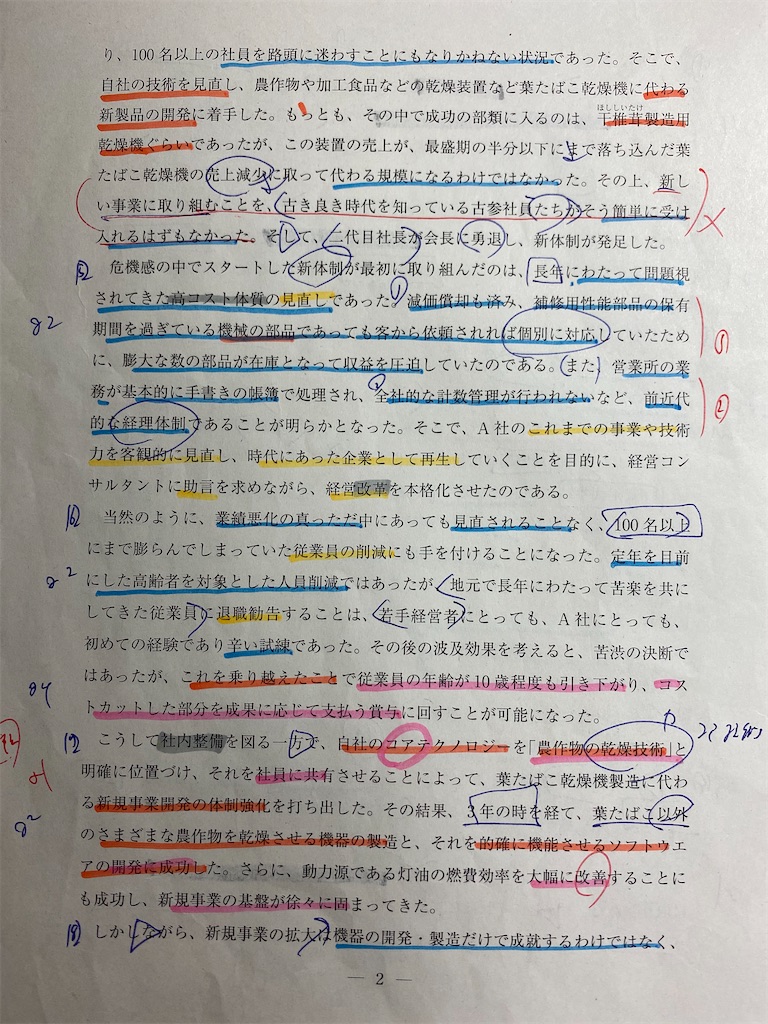 り、100名以上の社員を路頭に迷わすことにもなりかねない状況であった。そこで、
自社の技術を見直し、農作物や加工食品などの乾燥装置など葉たばこ乾燥機に代わる
新製品の開発に着手した。もっとも、その中で成功の部類に入るのは、干椎茸製造用
ほししいたけ
乾燥機ぐらいであったが、この装置の売上が、最盛期の半分以下にまで落ち込んだ葉
たばこ乾燥機の売上減少に取って代わる規模になるわけではなかった。その上、新し
い事業に取り組むことを、古き良き時代を知っている古参社員たちがそう簡単に受け
入れるはずもなかった。そして、二代目社長が会長に勇退し、新体制が発足した。
危機感の中でスタートした新体制が最初に取り組んだのは、長年にわたって問題視
されてきた高コスト体質の見直しであった。減価償却も済み、補修用性能部品の保有
g2
期間を過ぎている機械の部品であっても客から依頼されれば個別に対応していたため
①
に、膨大な数の部品が在庫となって収益を圧迫していたのである。また、営業所の業
務が基本的に手書きの帳簿で処理され、全社的な計数管理が行われないなど、前近代
②
的な経理体制であることが明らかとなった。そこで、A社のこれまでの事業や技術
力を客観的に見直し、時代にあった企業として再生していくことを目的に、経営コン
サルタントに助言を求めながら、経営改革を本格化させたのである。
当然のように、業績悪化の真っただ中にあっても見直されることなく、100名以上
にまで膨らんでしまっていた従業員の削減にも手を付けることになった。定年を目前
にした高齢者を対象とした人員削減ではあったが、地元で長年にわたって苦楽を共に
してきた従業員に退職勧告することは、若手経営者にとっても、A社にとっても、
初めての経験であり辛い試練であった。その後の波及効果を考えると、苦渋の決断で
はあったが、これを乗り越えたことで従業員の年齢が10歳程度も引き下がり、コス
トカットした部分を成果に応じて支払う賞与に回すことが可能になった。
こうして社内整備を図る一方で、自社のコアテクノロジーを「農作物の乾燥技術」と
明確に位置づけ、それを社員に共有させることによって、葉たばこ乾燥機製造に代わ
る新規事業開発の体制強化を打ち出した。その結果、3年の時を経て、葉たばこ以外
のさまざまな農作物を乾燥させる機器の製造と、それを的確に機能させるソフトウエ
アの開発に成功した。さらに、動力源である灯油の燃費効率を大幅に改善することに
も成功し、新規事業の基盤が徐々に固まってきた。
しかしながら、新規事業の拡大は機器の開発・製造だけで成就するわけではなく、
— 2 —